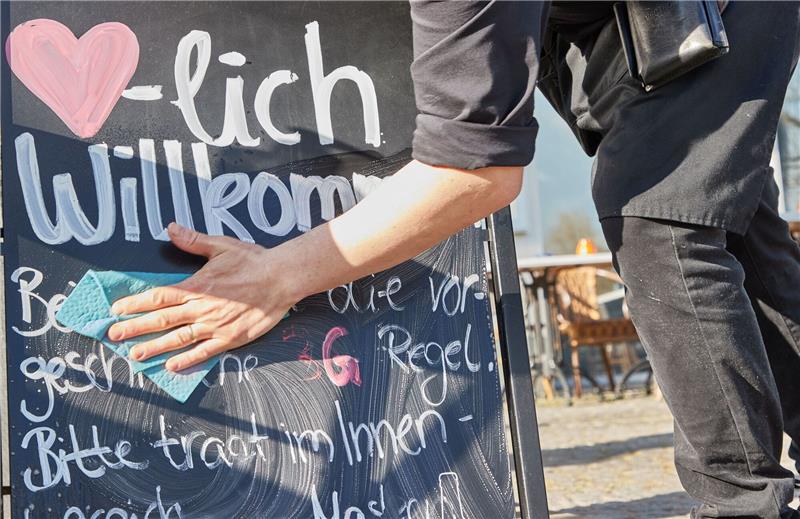 -lich
Willkom
Be die vor-
geschrie 3G Regel.
Bitte tragt im Innen-
bereich